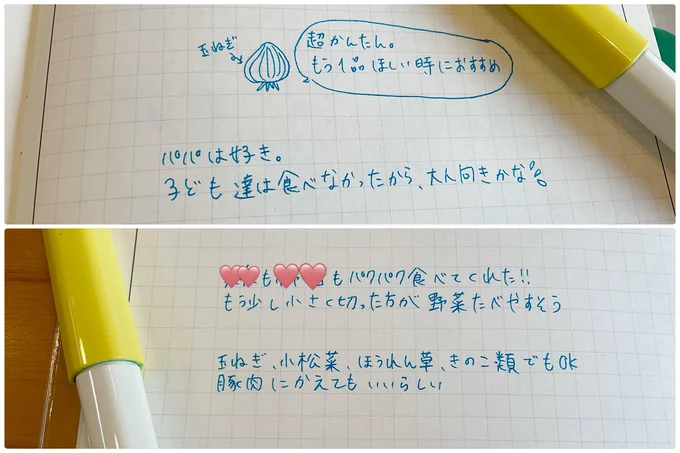 玉ねぎ
超かんたん。
もう1品ほしい時におすすめ
パパは好き。
子ども達は食べなかったから、大人向きかな
も
もパクパク食べてくれた!!
もう少し小さく切った方が野菜たべやすそう
玉ねぎ、小松菜、ほうれん草、きのこ類でもOK
豚肉にかえてもいいらしい